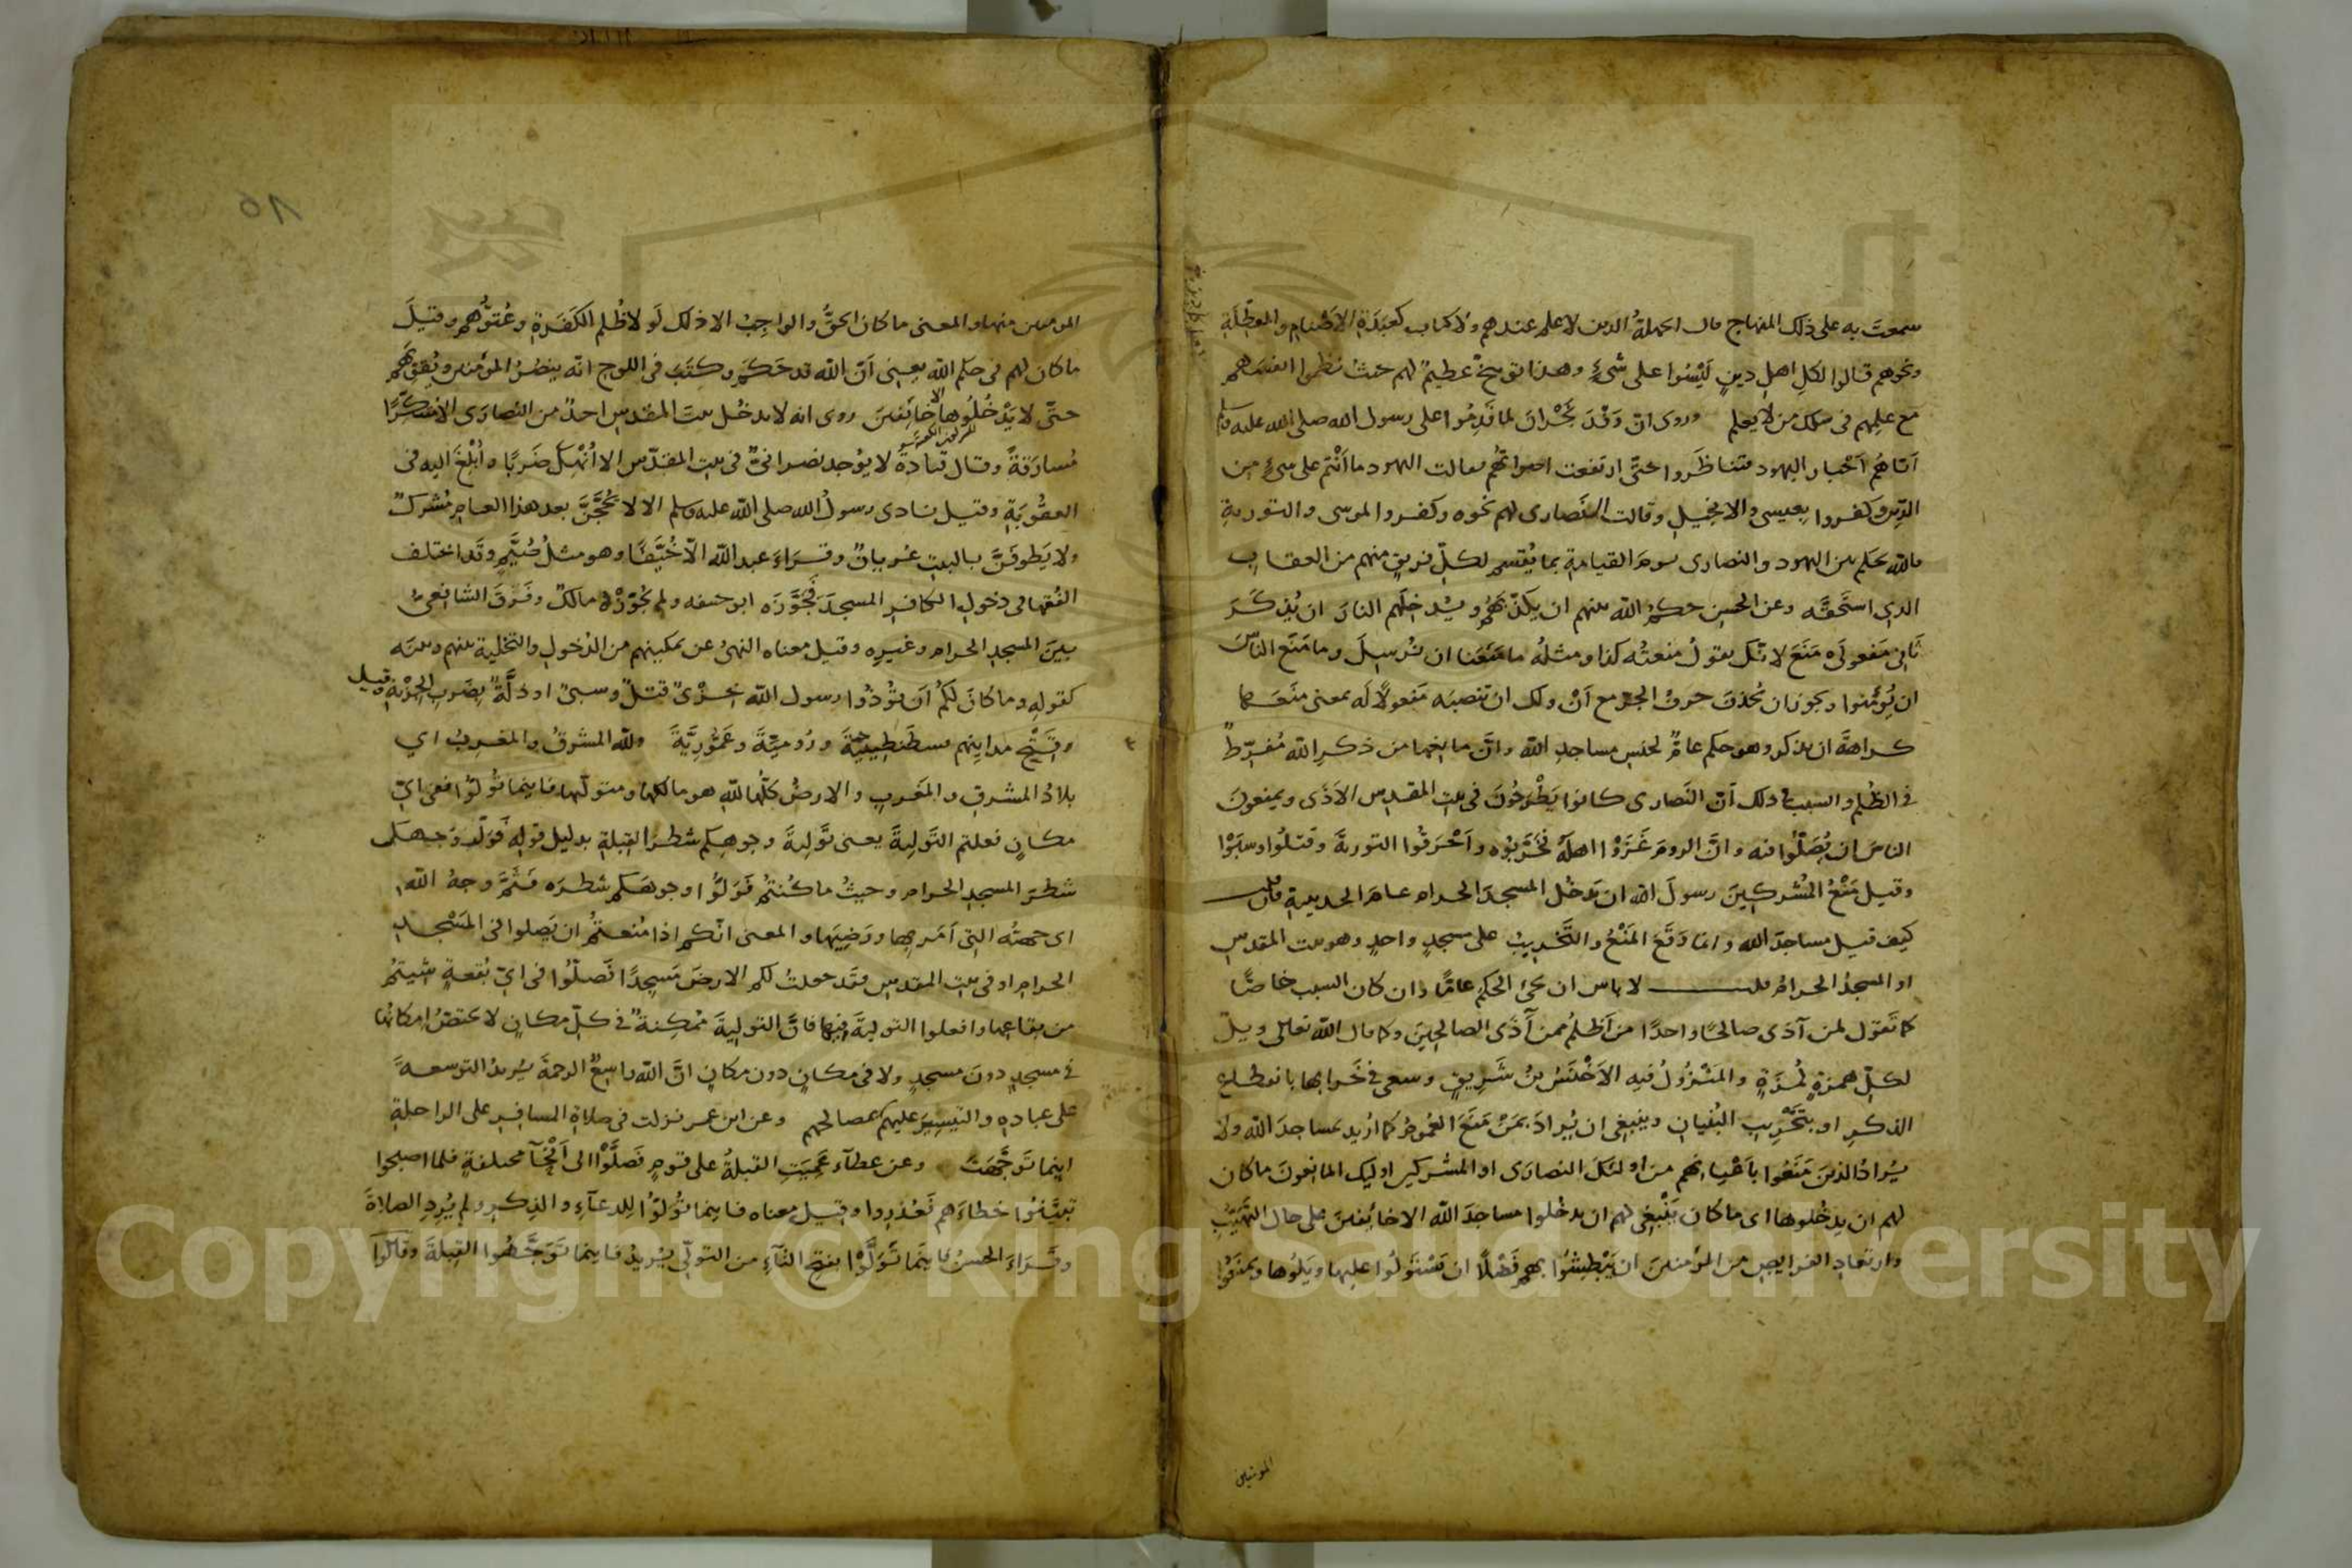 سمعتَ به على ذلك المنهاج قال الجهلةُ الذين لا علم عندهم ولا كتاب كعَبَدَةِ الاَصْنامِ والمعطِّلَةِ
ونحوهم قالوا لكلِ اهلِ دينٍ لَيْسُوا على شىْءٍ وهذا توبيخٌ عظيمٌ لهم حيثُ نظموا انفسَهم
مع علمِهم فى سلك من لا يعلم وروى انّ وَفْدَ نَجْرانَ لما قَدِمُوا على رسول الله صلى الله عليه وسلم
اَتاهُم اَحْبار اليهود فتناظَروا حتَّى ارتفعت اصواتُهُم فقالت اليهود ما اَنْتم على شىءٍ من
الدِّين وكفروا بعيسى والانجيلِ وقالت النَصارى لهم نحوه وكفروا بموسى والتوريةِ
فالله يحكم بين اليهود والنصارى يومَ القيامةِ بما يُقسم لكلِّ فريقٍ منهم من العقاب
الذي استَحقَّه وعن الحسنِ حكمُ الله بينهم ان يكذّبَهُم ويُدخِلَهم النارَ ان يُذكَرَ
ثانِى مَفعولَى مَنَعَ لانّك تقولُ منعتُه كذا ومثلهُ وما مَنَعَنا ان نُرسِلَ وما مَنَع النَّاسَ
ان يُؤمنوا ويجوز ان يُحذف حرفُ الجر مع اَنْ ولك ان تنصبَه مَفعولًا له بمعنى منَعَها
كراهةَ ان يذكر وهو حكم عامٌّ لجنسِ مساجدِ الله وانَّ مانِعَها من ذكرِ الله مُفرِطٌ
فى الظُلم والسببُ فى ذلك اَنّ النَصارى كانوا يَطْرَحُونَ فى بيتِ المقدِس الاَذَى ويمنعونَ
الناسَ ان يُصَلُّوا فيه وانَّ الرومَ غَزَوْا اهلَهُ فخَرَّبُوه واَحْرَقُوا التوريةَ وقَتلُوا وسَبَوْا
وقيل مَنْعُ المُشركِينَ رسولَ الله ان يَدخُل المسجدَ الحرام عامَ الحديبيةِ فان قلت
كيف قيل مساجدَ الله وانما وَقَعَ المَنْعُ والتَّخريبُ على مسجدٍ واحدٍ وهو بيت المقدسِ
او المسجدُ الحرامُ قلت لا باس ان يجىَ الحكم عامًّا وان كان السبب خاصًّا
كما تَقول لمن آذَى صالحًا واحدًا من اَظلمُ ممن آذَى الصالحِينَ وكما قال الله تعالى ويلٌ
لكلِّ همزةٍ لُمزَةٍ والمَنْزُولُ فيه الاَخْنَسُ بنُ شَرِيقٍ وسعى فى خَرابها بانقطاعِ
الذكرِ او بتَخْرِيبِ البُنيانِ وينبغى ان يُرادَ بمَنْ مَنَعَ العُمومُ كما اُريد بمساجدَ الله ولا
يُرادُ الذينَ مَنَعُوا باَعْيانِهم من اولئكَ النصارَى او المشركين اوليك المانِعونَ ما كان
لهم ان يدخُلوها اى ما كان يَنْبغِى لهم ان يدخُلوا مساجدَ الله الا خايفينَ على حال التهَيُّبِ
وارتعادِ الفرايصِ من المؤمنينَ ان يَبْطِشُوا بهم فَضْلًا ان يَسْتَولُوا عليها ويَلُوها ويمنعُوا
المومنين
المومنين منها والمعنى ما كان الحقُّ والواجِبُ الا ذلك لَو لا ظُلم الكَفَرةِ وعُتوُّهم وقيلَ
ما كان لهم فى حكم اللهِ يعنى اَنّ الله قد حَكَم وكتَبَ فى اللوحِ انه ينصُرُ المؤمنين ويُقوِّيهم
حتَّى لا يَدْخُلُوها الا خائِفينَ روى انه لا يدخُل بيتَ المقدسِ احدٌ من النصارَى الا متنكّرًا
مُسارَقةً وقال قتادةُ لا يوُجد نصرانىٌّ فى بيتِ المقدّس الا اُنْهِكَ ضَربًا واُبْلغَ اليه فى
العقُوبَةِ وقيل نادى رسولُ الله صلى الله عليه وسلم الا لا يَحُجَّنَّ بعد هذا العامِ مُشركٌ
ولا يَطوفَنَّ بالبيتِ عُريانٌ وقراءَ عبد الله الّا خُيَّفًا وهو مثلُ صُيَّمٍ وقَد اختلف
الفُقها فى دخولِ الكافرِ المسجدَ فجَوَّزَه ابو حنيفه ولم يُجَوِّزْهُ مالكٌ وفَرَقَ الشافعىُّ
بينَ المسجدِ الحرامِ وغيرِه وقيل معناه النهىُ عن تمكينهم من الدُخولِ والتخلية بينهم وبينَه
كقولِه وما كانَ لكُم اَن توُذُوا رسول الله خِزْىٌ قتلٌ وسبىٌ او ذلَّةٌ بِضَربِ الجزْيةِ وقيل
وفَتْحِ مدايِنهم قسطنطِينِيَّةَ ورُومِيّةَ وعَمُّورِيَّةَ ولله المشرقُ والمغربُ اي
بلادُ المشرقِ والمغربِ والارضُ كلّها للهِ هو مالكها ومتولّيها فاينما تُولّوُا ففى اىِّ
مكانٍ فعلتم التَولِيةَ يعنى تَولِيةَ وجوهِكم شطرَ القبلةِ بدليل قولِه فَولِّ وَجهَك
شطرَ المسجدِ الحرام وحيثُ ما كُنتُم فَولُّوا وجوهَكم شطرَه فَثَمَّ وجهُ الله
اى جهتُه التِى اَمَر بِها ورَضِيَها والمعنى انّكم اذا مُنعتمُ ان تصَلوا فى المَسْجدِ
الحرامِ او فى بيتِ المقدسِ فقَد جعلتُ لكم الارضَ مَسجِدًا فَصلُّوا فى اىِّ بُقعةٍ شيتُم
من بقاعِها وافعلوا التوليةَ فيها فانَّ التولِيةَ مُمكِنةٌ فى كلِّ مكانٍ لا يختصُّ امكانُها
فى مسجدٍ دونَ مسجدٍ ولا فى مكانٍ دون مكانٍ انَّ الله واسِعٌ الرحمةَ يُريدُ التوسعهَ
على عبادِه والتيسِيرَ عليهم بمصالحهم وعن ابن عمر نزلت فى صلاةِ المسافِرِ على الراحلةِ
اينما تَوجَّهَتْ وعن عطآء عَمِيَتِ القبلةُ على قومٍ فَصلَّوْا الى اَنْحَآ مختلفةٍ فلما اصبحوا
تبيَّنُوا خطاءَهم فَعُذِروا وقيل معناه فاينما تُولُّوُا لِلدعآءِ والذِكرِ ولم يُرِدِ الصلاةَ
وقَراءَ الحسنُ فاينَما تَوَلَّوْا بفتحِ التآءِ من التولّى يُريدُ فاينما تَوَجَّهُوا القِبلةَ وقالوُا
Copyright © King Saud University